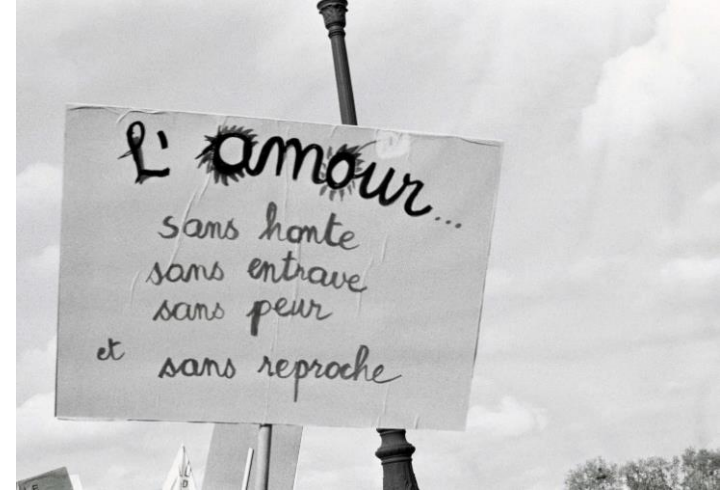 L' amour...
sans honte
sans entrave
sans peur
et sans reproche